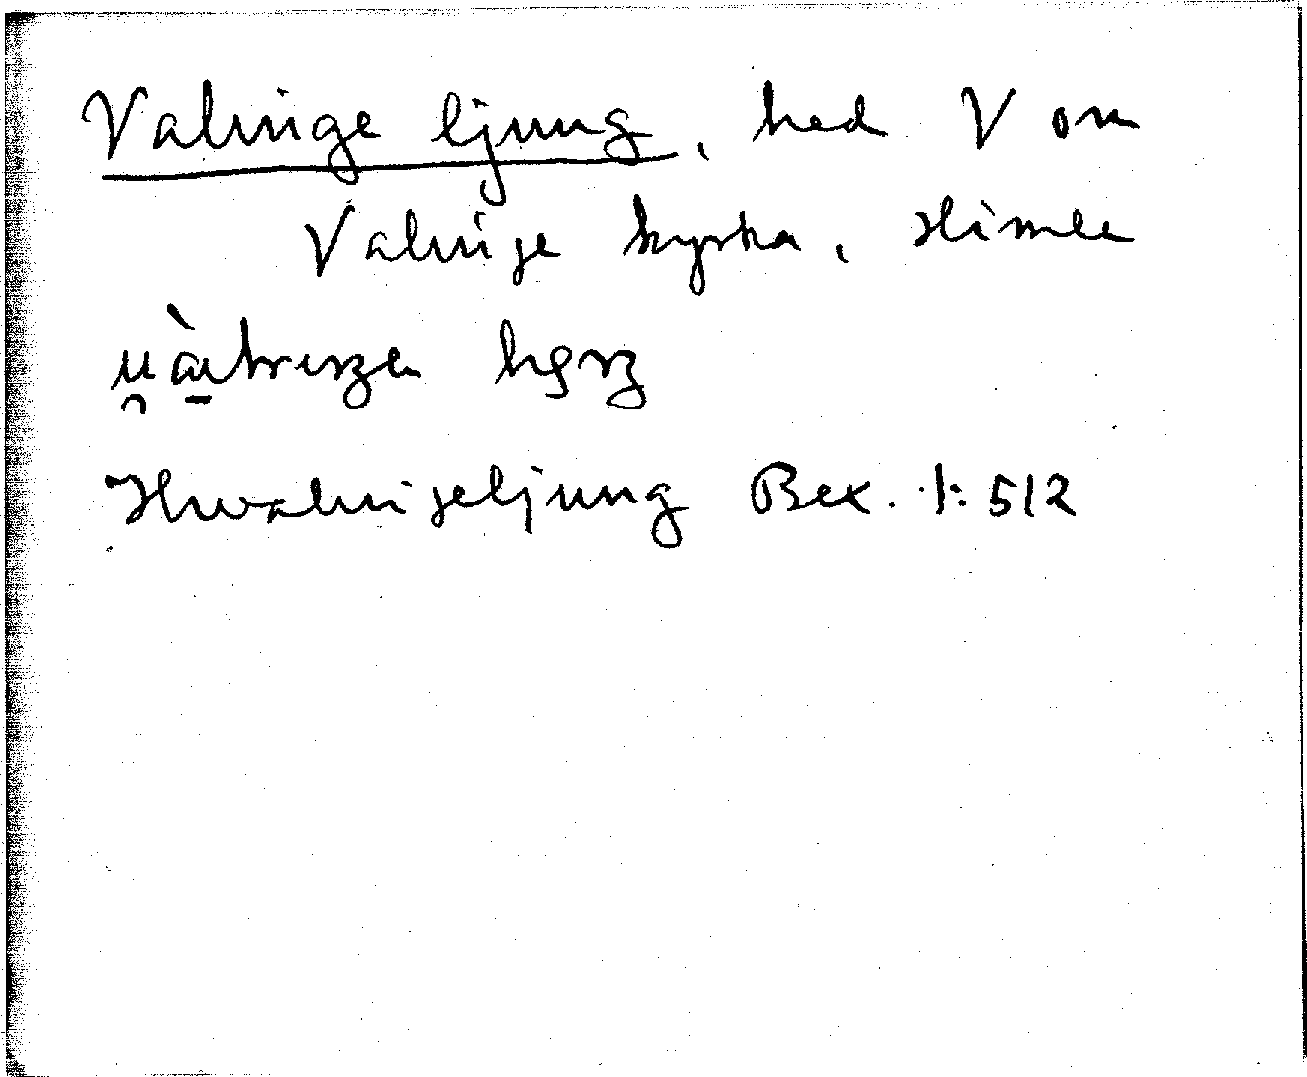 Valinge ljung, hed V om
Valinge kyrka, Himle
Hwalingeljung Bex. 1:512